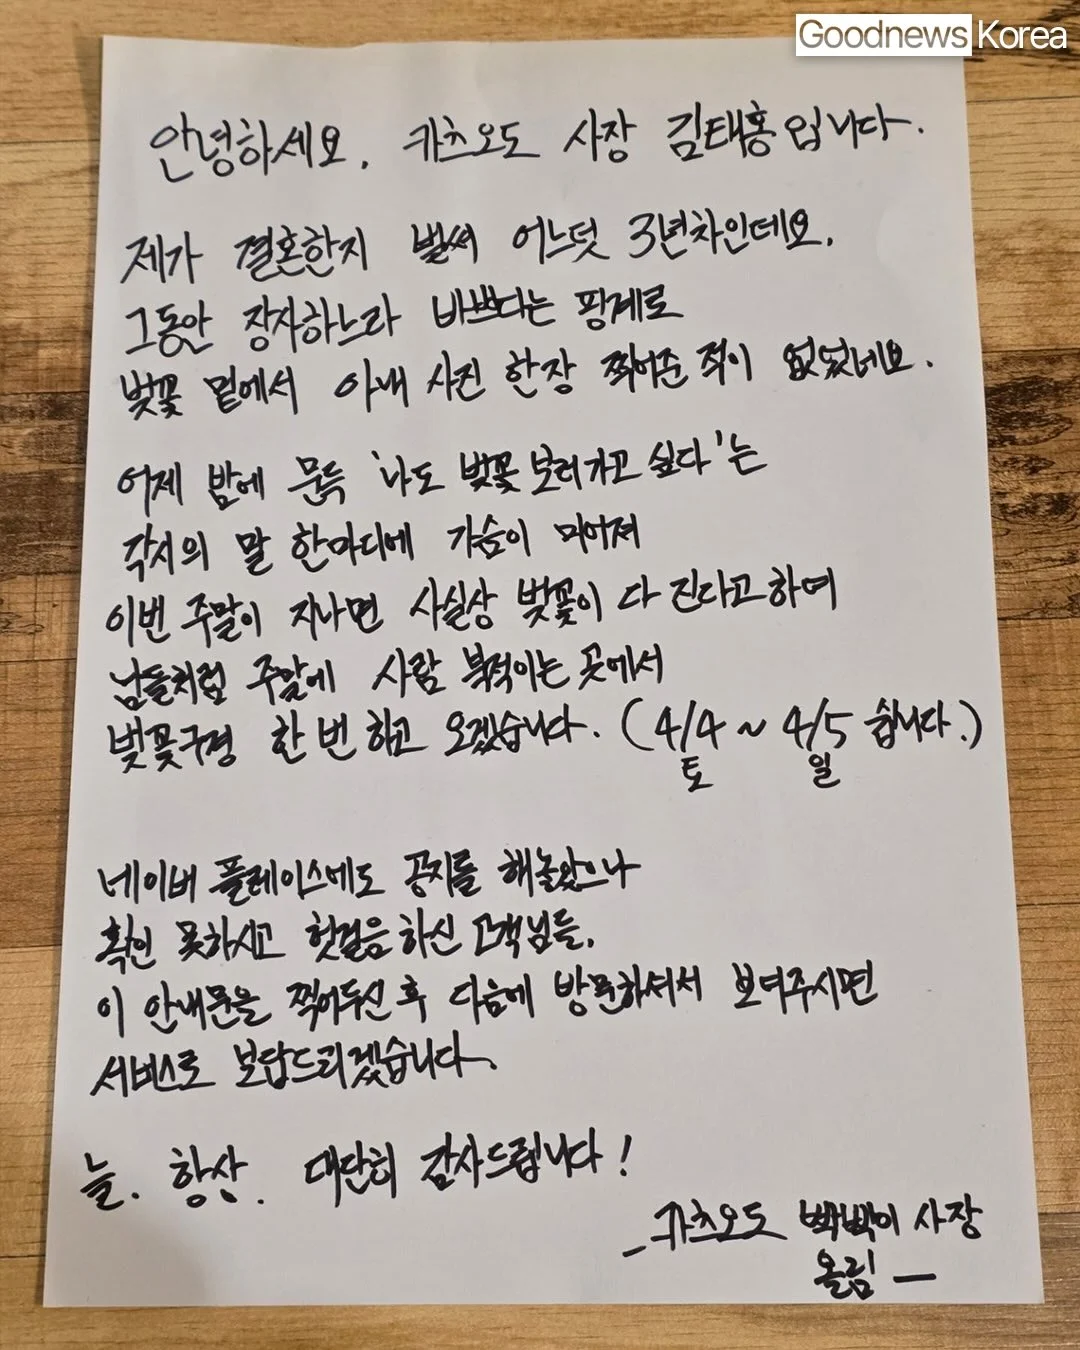 Goodnews Korea
안녕하세요. 카츠오도 사장 김태홍입니다.
제가 결혼한지 벌써 어느덧 3년차인데요.
그동안 장사하느라 바쁘다는 핑계로
벚꽃 밑에서 아내 사진 한장 찍어준 적이 없었네요.
어제 밤에 문득 '나도 벚꽃 보러가고 싶다'는
각시의 말 한마디에 가슴이 미어져
이번 주말이 지나면 사실상 벚꽃이 다 진다고 하여
남들처럼 주말에 사람 북적이는 곳에서
벚꽃구경 한 번 하고 오겠습니다. (4/4 ~ 4/5 쉽니다.)
토 일
네이버 플레이스에도 공지를 해놓았으나
확인 못하시고 헛걸음 하신 고객님들,
이 안내문을 찍어두신 후 다음에 방문하셔서 보여주시면
서비스로 보답드리겠습니다.
늘. 항상. 대단히 감사드립니다!
_카츠오도 빡빡이 사장
올림 —